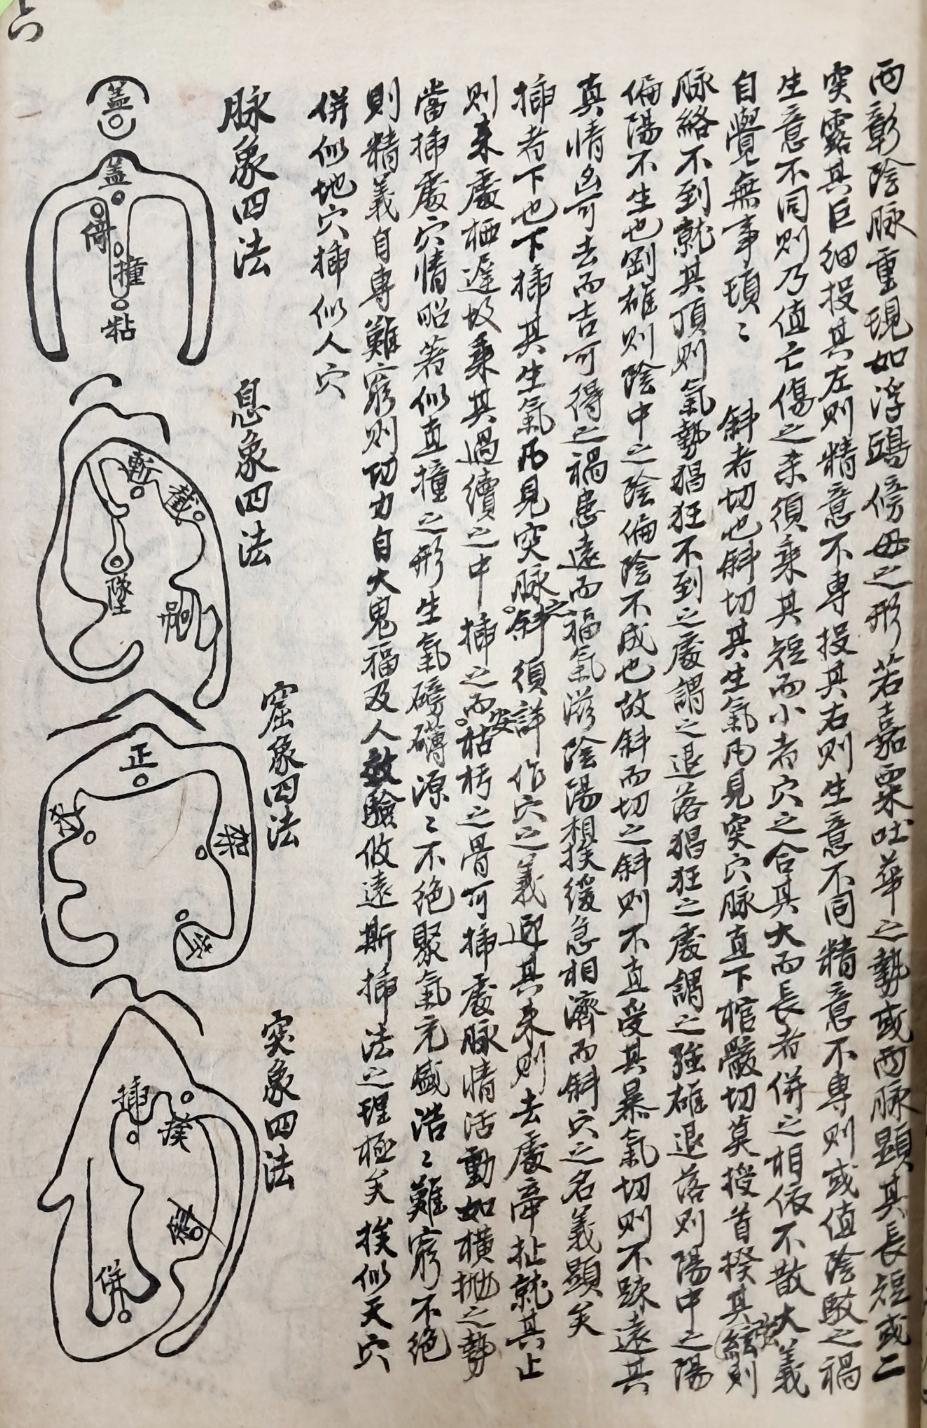 両彰陰脉重現如浮鷗傍母之形若嘉粟吐華之勢或両脉顕其長短或二
突露其巨細投其左則精意不專投其右則生意不同精意不專則或值陰駁之禍
生意不同則乃值亡傷之來須乘其短而小者穴之合其大而長者併之相依不散大義
自覺無事頊〻 斜者切也斜切其生氣凡見突穴脉直下棺嚴切莫授首揆其絃弦則
脉絡不到就其頂則氣勢猖狂不到之處謂之退落猖狂之處謂之強雄退落則陽中之陽
偏陽不生也剛雄則陰中之陰偏陰不成也故斜而切之斜則不直受其暴氣切則不踈遠其
真情凶可去而吉可得之禍患遠而福氣滋陰陽想挨緩急相濟而斜穴之名義顯矣
挿者下也下挿其生氣凡見突脉之斜須詳作穴之義迎其來則去處牽扯就其止
則来處栖遲故乘其過續之中挿之而安枯朽之骨可挿處脉情活動如橫抛之勢
當挿處穴情昭著似直撞之形生氣磅礴源〻不絶聚氣充盛浩〻難窮不絶
則精義自專難窮則功力自大鬼福及人效驗攸遠斯挿法之理極矣挨似天穴
併似地穴挿似人穴
脉象四法
蓋
蓋
倚
撞
粘
息象四法
斬
截
墜
窟象四法
正
架
突象四法
挿
挨
併